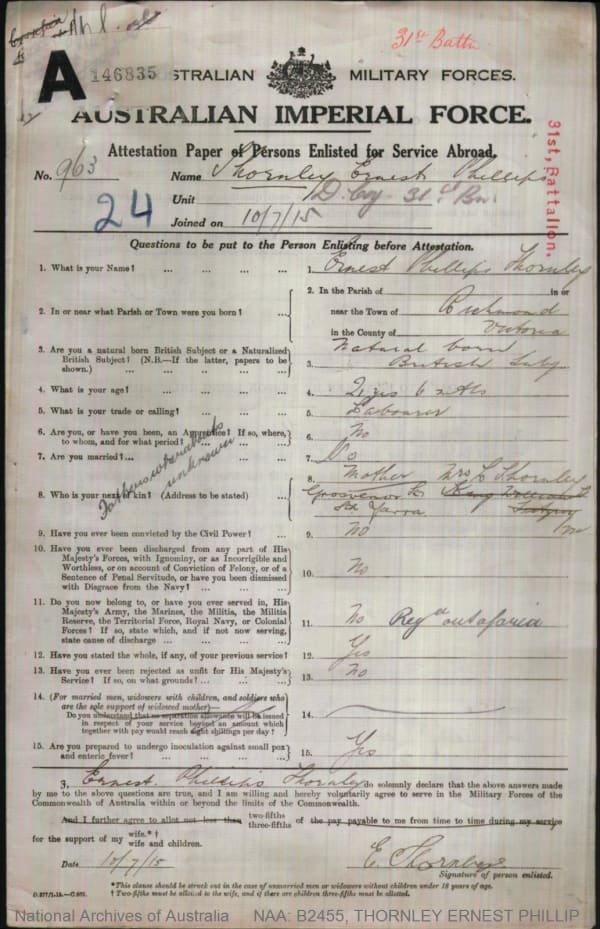 31st Battn
A 146835 STRALIAN MILITARY FORCES.
AUSTRALIAN IMPERIAL FORCE.
Attestation Paper of Persons Enlisted for Service Abroad.
No. 963 Name Thornley Ernest Phillips
Unit D. Coy 31st Bn.
24 Joined on 10/7/15
31st, Battalion.
Questions to be put to the Person Enlisting before Attestation.
1. What is your Name? ... ... ... ... 1. Ernest Phillips Thornley
2. In or near what Parish or Town were you born? ...
2. In the Parish of in or
near the Town of Richmond
in the County of Victoria
3. Are you a natural born British Subject or a Naturalized
British Subject? (N.B.—If the latter, papers to be
shown.) ... ... ... ... ...
3. Natural born
British Subj
4. What is your age? ... ... ... ... 4. 21 yrs 6 mths
5. What is your trade or calling? ... ... ... 5. Labourer
6. Are you, or have you been, an Apprentice? If so, where,
to whom, and for what period? ... ... ... 6. No
7. Are you married?... ... ... ... ... 7. No
Fathers whereabouts
unknown
8. Who is your next of kin? (Address to be stated) ...
8. Mother Mrs C Thornley
Grosvenor St King William St
Sth Yarra Fitzroy
Vic
9. Have you ever been convicted by the Civil Power? ... 9. No
10. Have you ever been discharged from any part of His
Majesty's Forces, with Ignominy, or as Incorrigible and
Worthless, or on account of Conviction of Felony, or of a
Sentence of Penal Servitude, or have you been dismissed
with Disgrace from the Navy? ... ... ... 10. No
11. Do you now belong to, or have you ever served in, His
Majesty's Army, the Marines, the Militia, the Militia
Reserve, the Territorial Force, Royal Navy, or Colonial
Forces? If so, state which, and if not now serving,
state cause of discharge ... ... ... ... 11. No Regd out of area
12. Have you stated the whole, if any, of your previous service? 12. Yes
13. Have you ever been rejected as unfit for His Majesty's
Service? If so, on what grounds? ... ... ... 13. No
14. (For married men, widowers with children, and soldiers who
are the sole support of widowed mother)—
Do you understand that no separation allowance will be issued
in respect of your service beyond an amount which
together with pay would reach eight shillings per day? 14.
15. Are you prepared to undergo inoculation against small pox
and enteric fever? ... ... ... ... 15. Yes
I, Ernest Phillips Thornley do solemnly declare that the above answers made
by me to the above questions are true, and I am willing and hereby voluntarily agree to serve in the Military Forces of the
Commonwealth of Australia within or beyond the limits of the Commonwealth.
And I further agree to allot not less than two-fifths
three-fifths of the pay payable to me from time to time during my service
for the support of my wife.*†
wife and children.
Date 10/7/15 E. Thornley
Signature of person enlisted.
*This clause should be struck out in the case of unmarried men or widowers without children under 18 years of age.
† Two-fifths must be allotted to the wife, and if there are children three-fifths must be allotted.
National Archives of Australia NAA: B2455, THORNLEY ERNEST PHILLIP